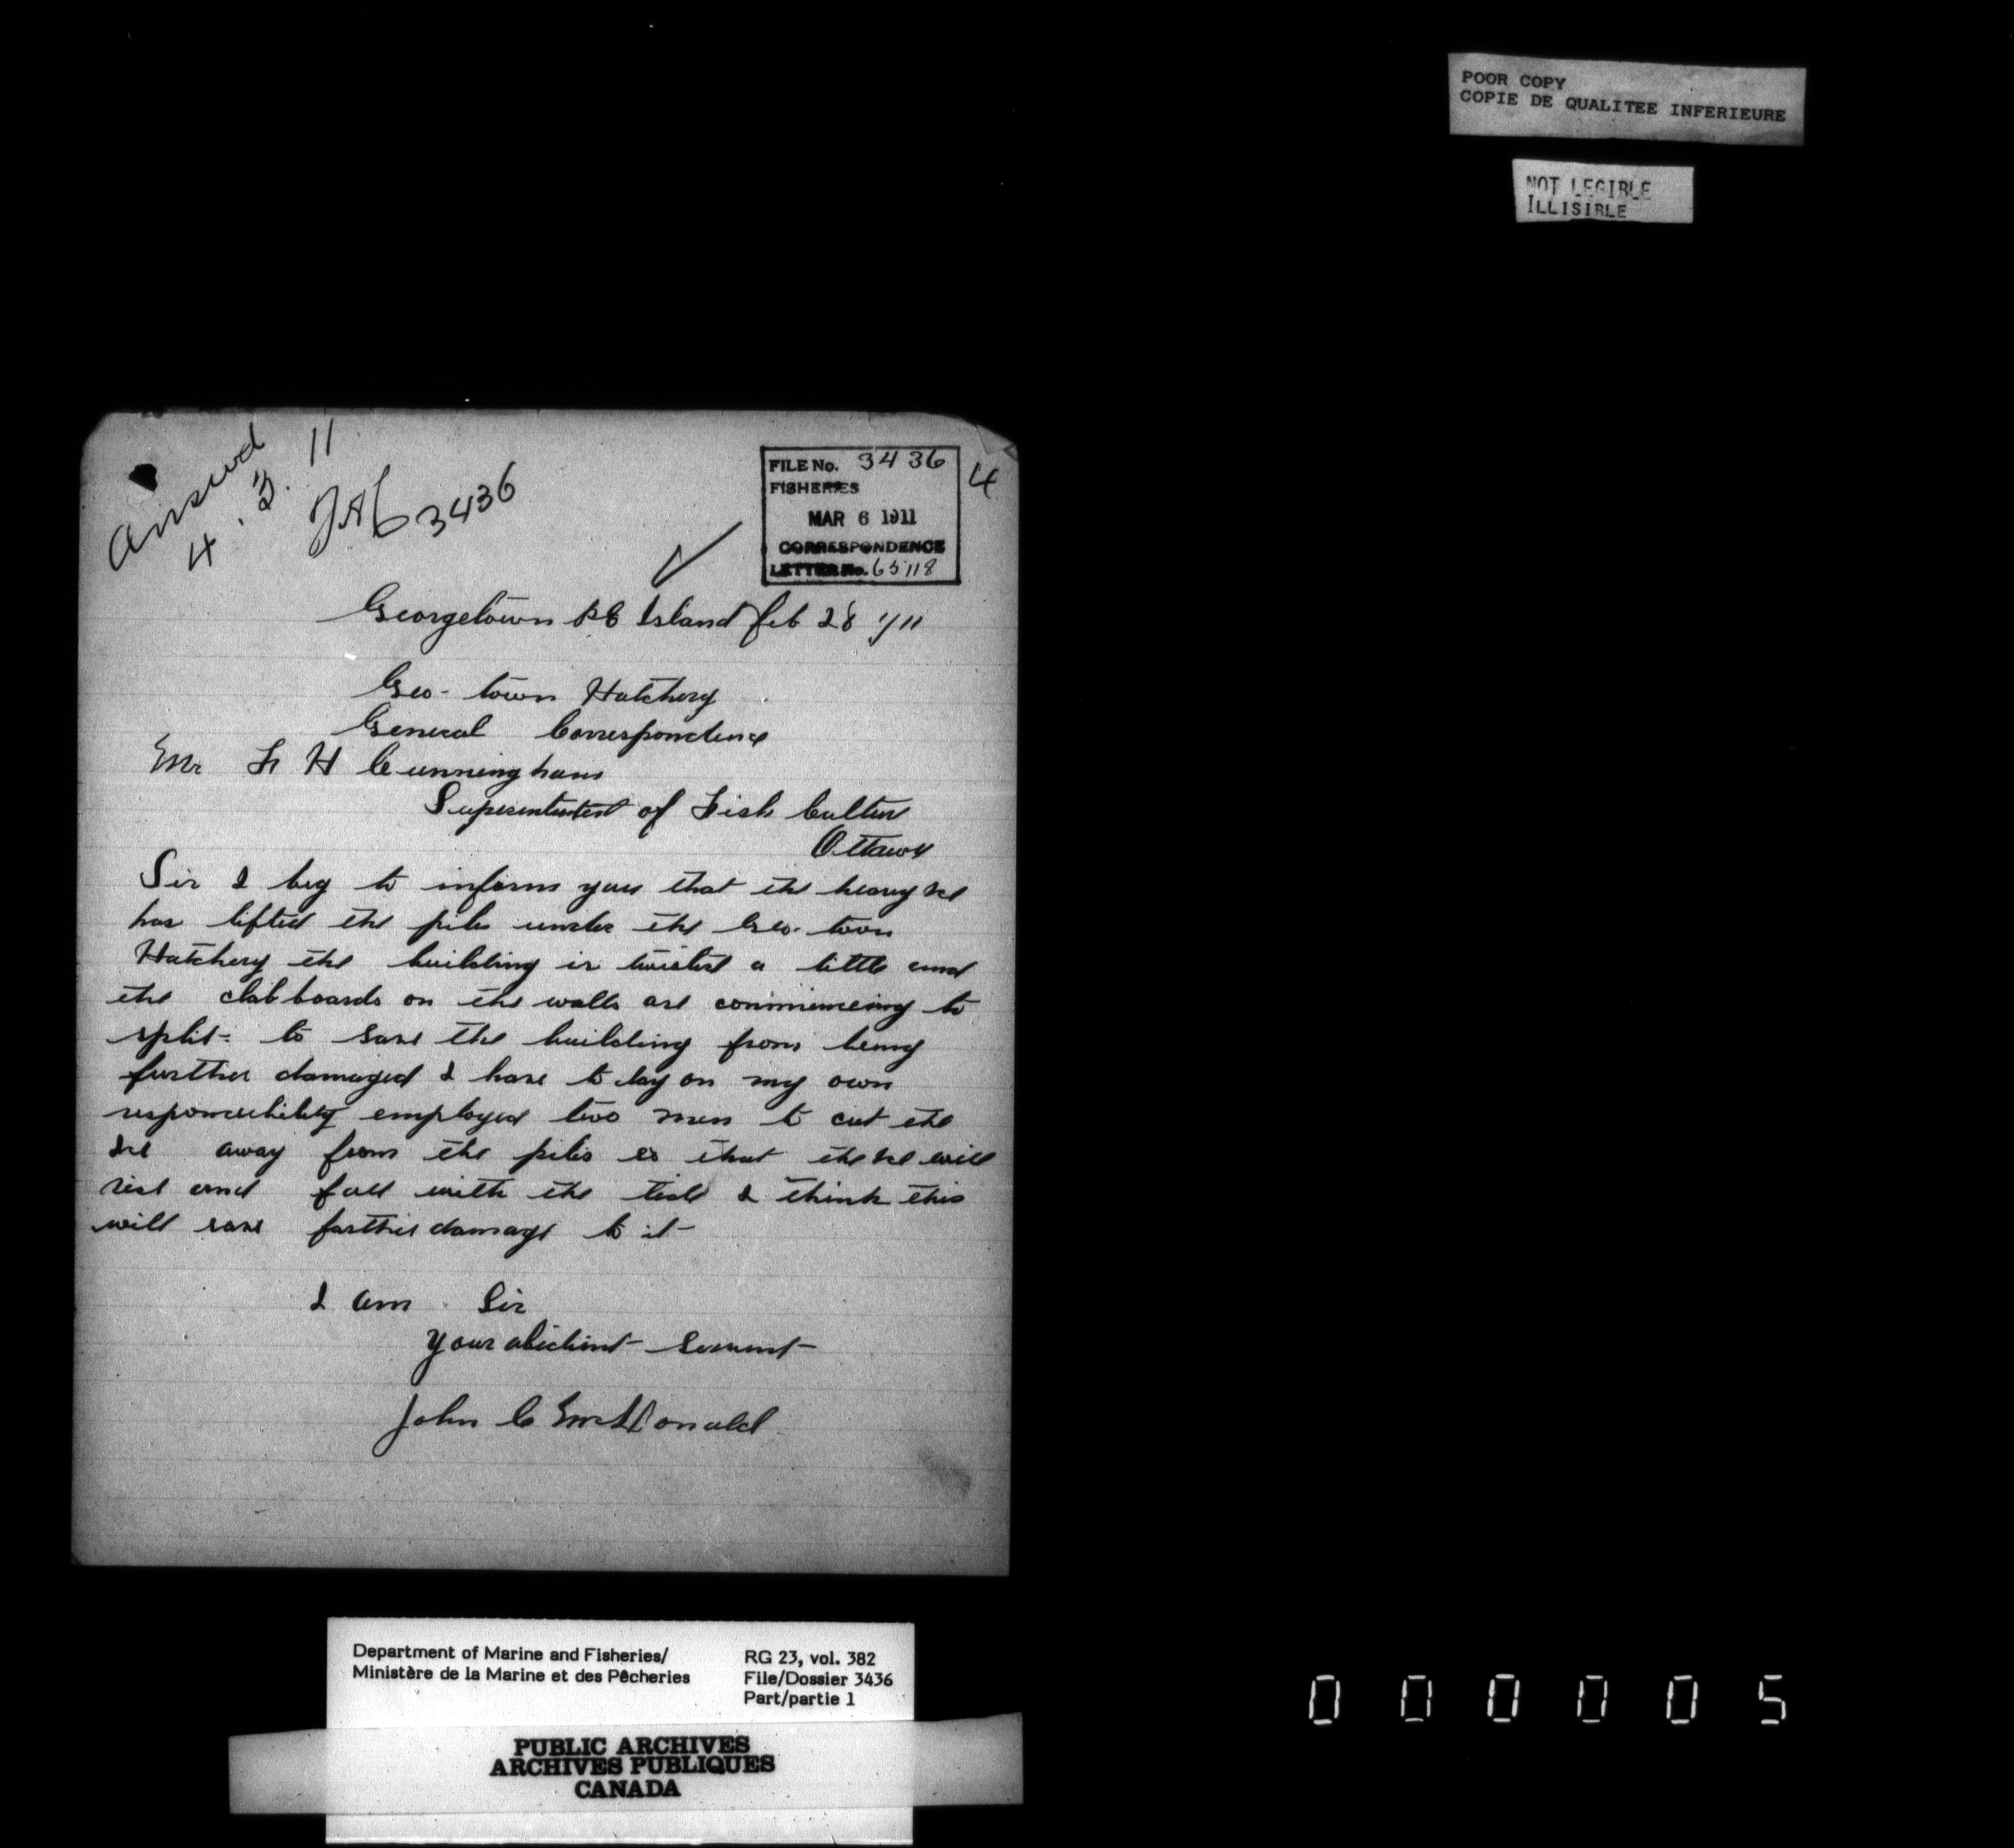 POOR COPY
COPIE DE QUALITEE INFERIEURE
NOT LEGIBLE
ILLISIBLE
Answd
4.3.11
3436
FILE No. 3436
FISHERIES
MAR 6 1911
CORRESPONDENCE
LETTER No. 65118
4
Georgetown P E Island Feb 28 /11
Geo- town Hatchery
General Correspondence
Mr F H Cunningham
Superentendent of Fish Culture
Ottawa
Sir I beg to inform you that the heavy ice
has lifted the piles under the Geo- town
Hatchery the building is twisted a little and
the clabboards on the walls are commenceing to
split- to save the building from being
further damaged I have to day on my own
responcibility employed two men to cut the
ice away from the piles so that the ice will
rise and fall with the tide I think this
will save farther damage to it
I am Sir
Your obedient Servent
John C McDonald
Department of Marine and Fisheries/
Ministère de la Marine et des Pêcheries
RG 23, vol. 382
File/Dossier 3436
Part/partie 1
PUBLIC ARCHIVES
ARCHIVES PUBLIQUES
CANADA
000005